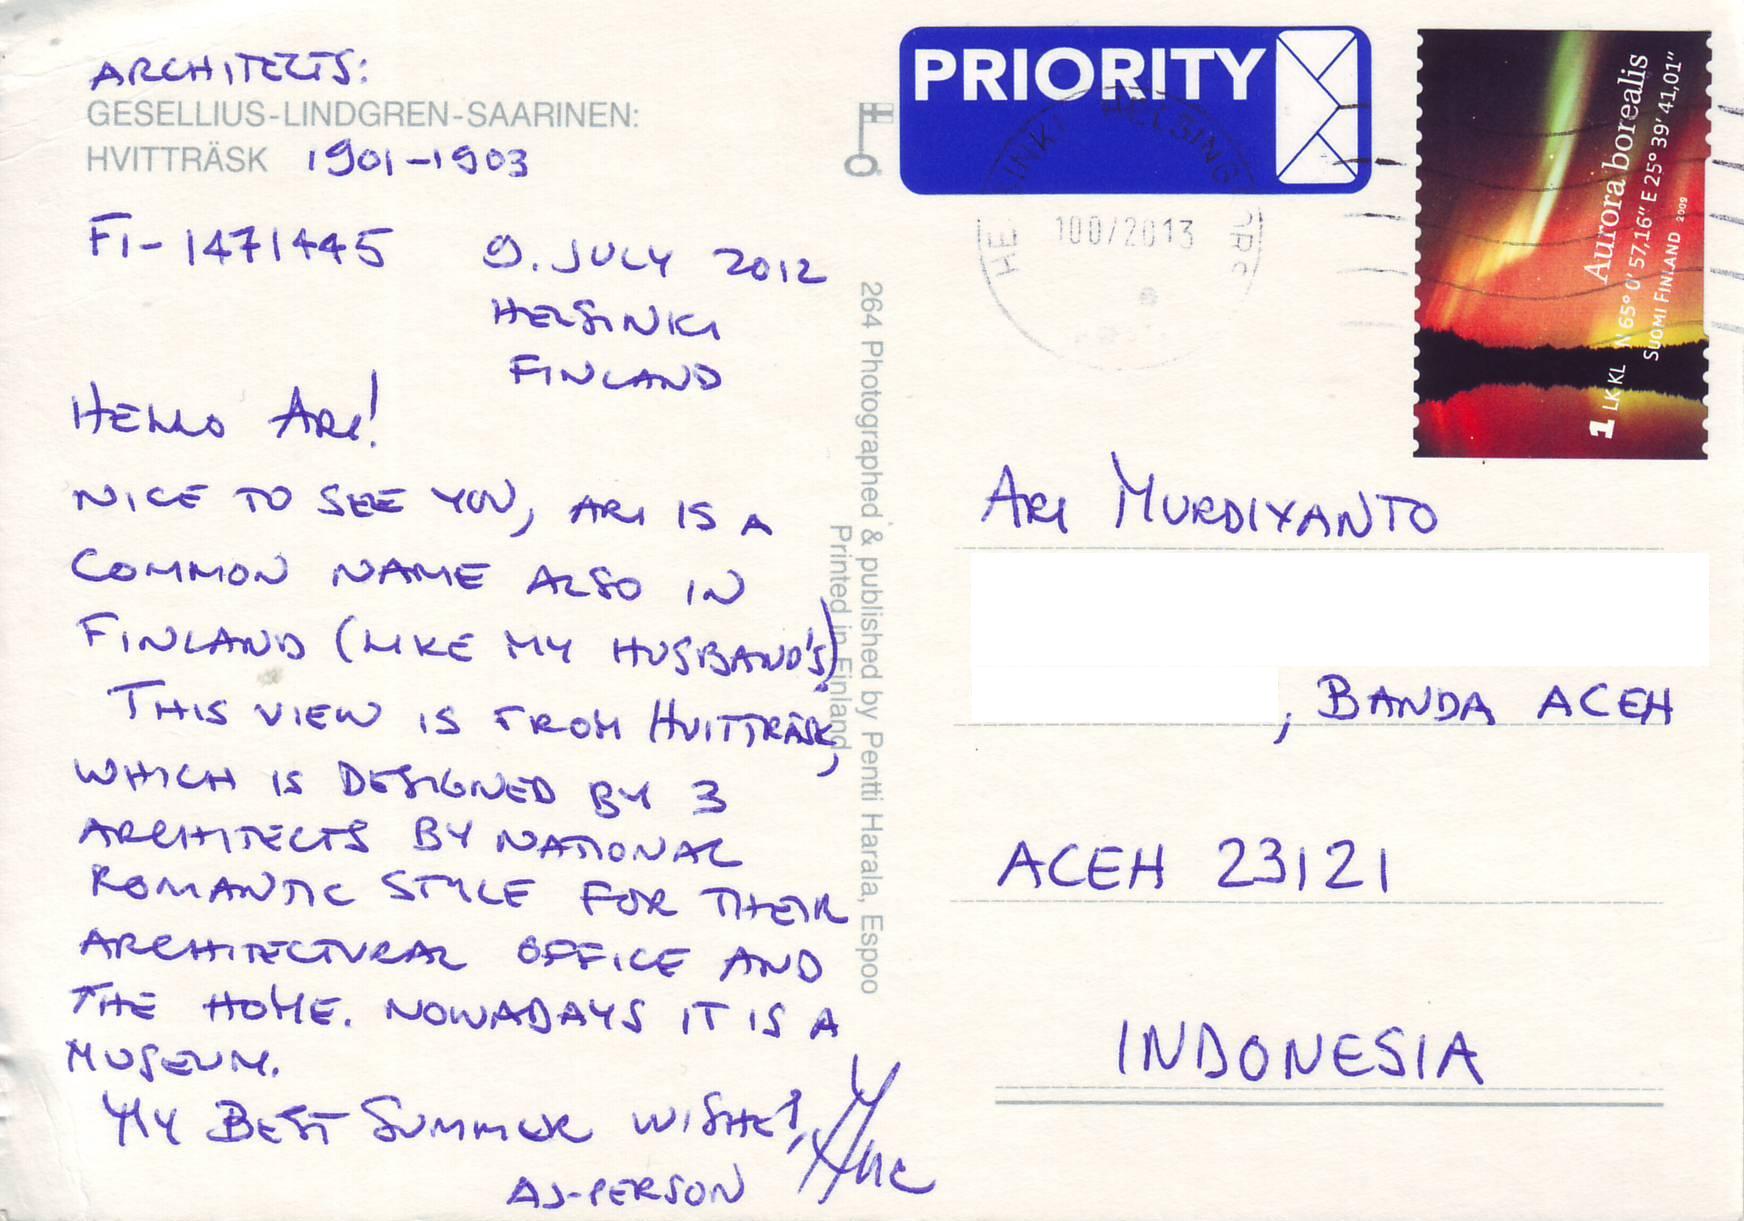 ARCHITECTS:
GESELLIUS-LINDGREN-SAARINEN:
HVITTRÄSK 1901-1903
FI-1471445
9. JULY 2012
HELSINKI
FINLAND
HELLO ARI!
NICE TO SEE YOU, ARI IS A
COMMON NAME ALSO IN
FINLAND (LIKE MY HUSBAND'S).
THIS VIEW IS FROM HVITTRÄSK,
WHICH IS DESIGNED BY 3
ARCHITECTS BY NATIONAL
ROMANTIC STYLE FOR THEIR
ARCHITECTURAL OFFICE AND
THE HOME. NOWADAYS IT IS A
MUSEUM.
MY BEST SUMMER WISHES,
AJ-PERSON
264 Photographed & published by Pentti Harala, Espoo
Printed in Finland
PRIORITY
HELSINKI HELSINGFORS
100/2013
Aurora borealis
N 65° 0' 57,16" E 25° 39' 41,01"
SUOMI FINLAND 2009
1 LK KL
ARI MURDIYANTO
, BANDA ACEH
ACEH 23121
INDONESIA